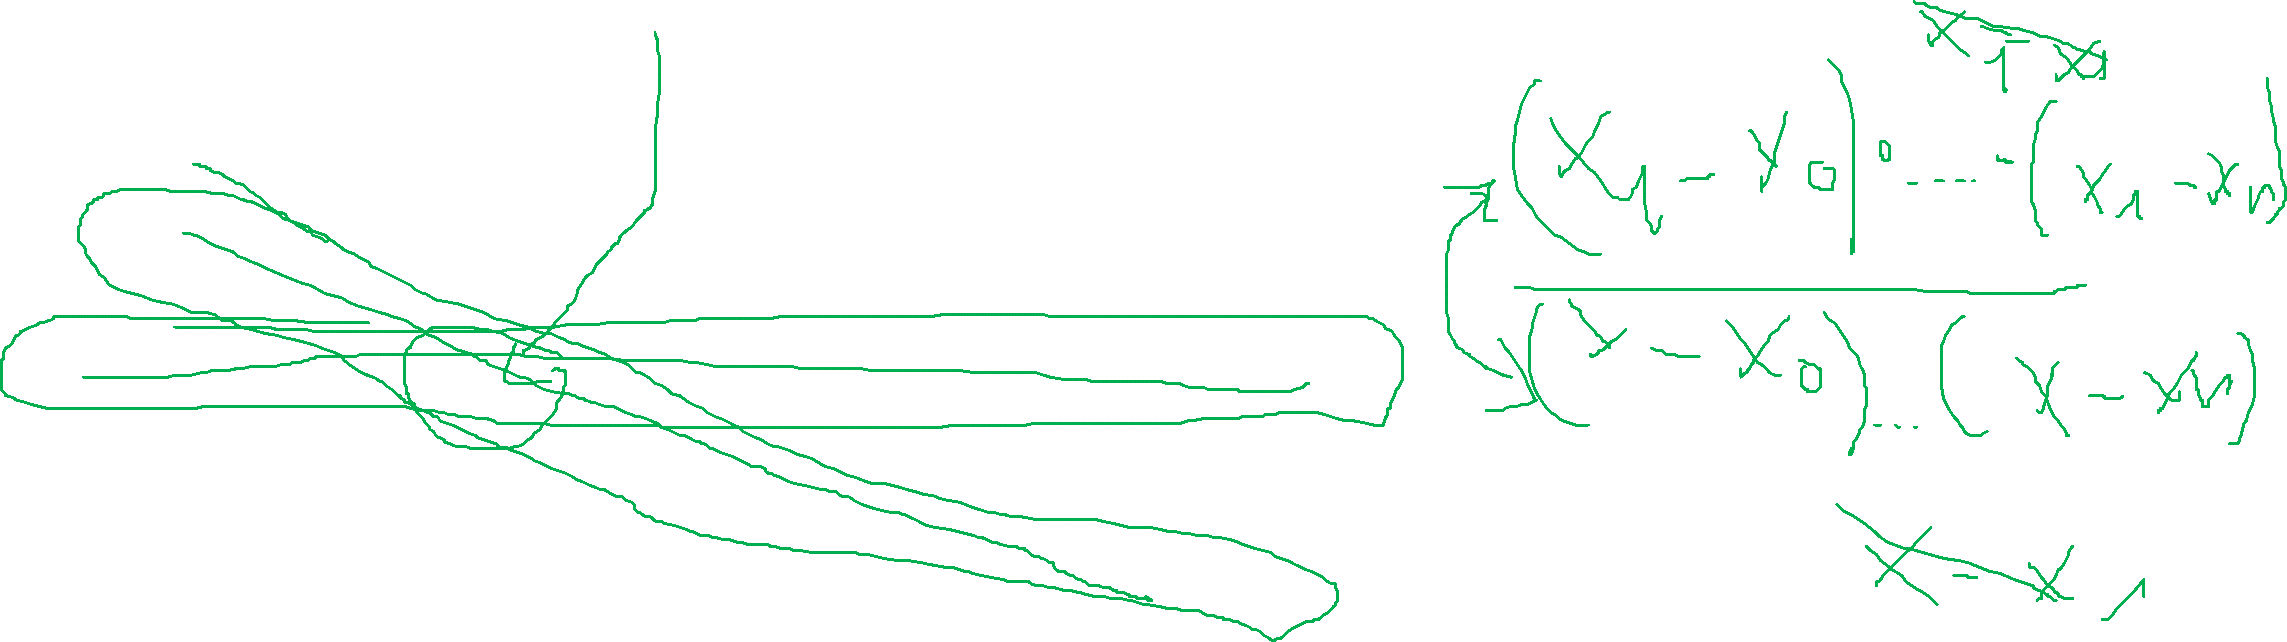 x₁ - x₁
(x₁ - x₀) · .... · (x₁ - xₙ)
(x - x₀) ... (x - xₙ)
x - x₁